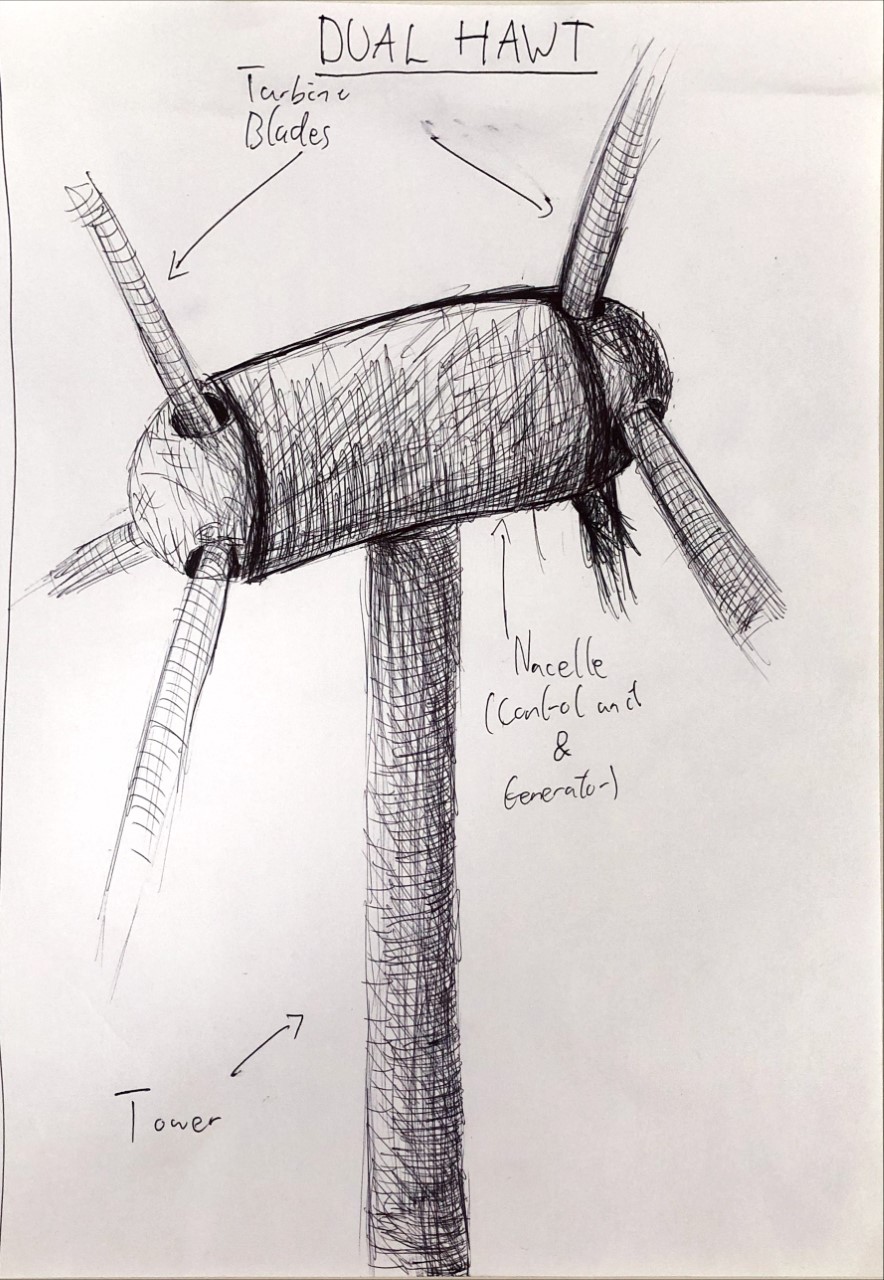 DUAL HAWT
Turbine
Blades
Nacelle
(Control unit
&
Generator)
Tower